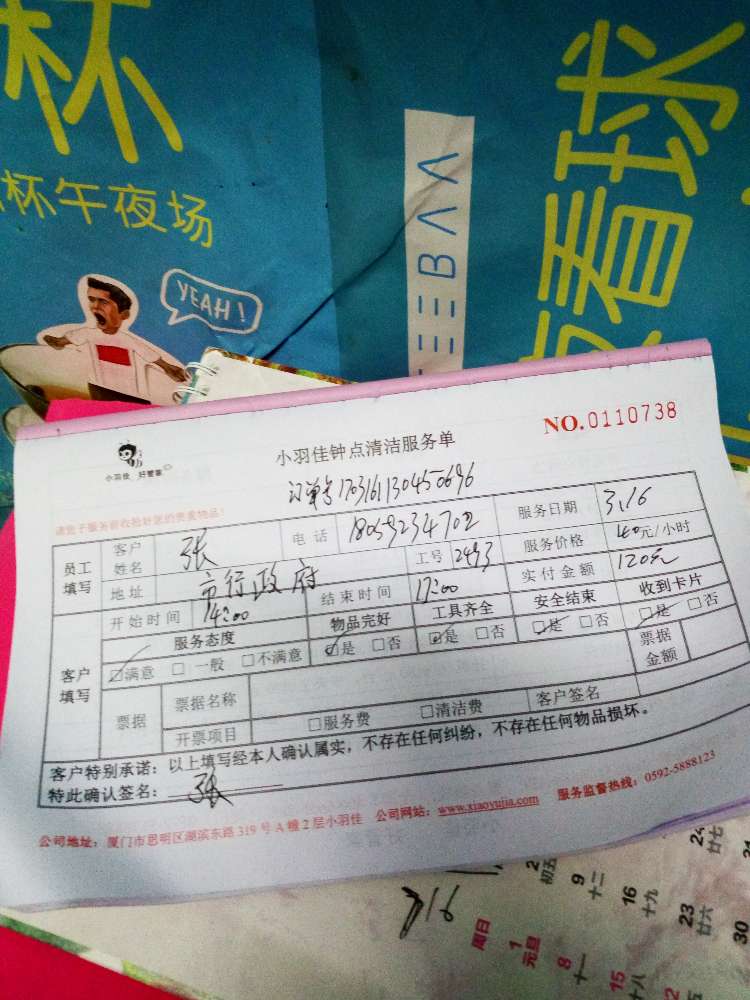 杯
杯午夜场
YEAH!
看球
NO.0110738
小羽佳 好管家
小羽佳钟点清洁服务单
订单号1703161130450696
请您于服务前收拾好您的贵重物品!
员工填写 客户姓名 张 电话 18059234702 服务日期 3.16
地址 市行政府 工号 2493 服务价格 40元/小时
开始时间 14:00 结束时间 17:00 实付金额 120元
客户填写 服务态度 物品完好 工具齐全 安全结束 收到卡片
☑满意 □一般 □不满意 ☑是 □否 ☑是 □否 ☑是 □否 ☑是 □否
票据 票据名称 票据金额
开票项目 □服务费 □清洁费 客户签名
客户特别承诺:以上填写经本人确认属实,不存在任何纠纷,不存在任何物品损坏。
特此确认签名: 张
公司地址:厦门市思明区湖滨东路319号A幢2层小羽佳 公司网站:www.xiaoyujia.com 服务监督热线:0592-5888123
周日
1 元旦
8 十一
15 十八
2 初五
9 十二
16 十九
23 廿六
30
24 廿七